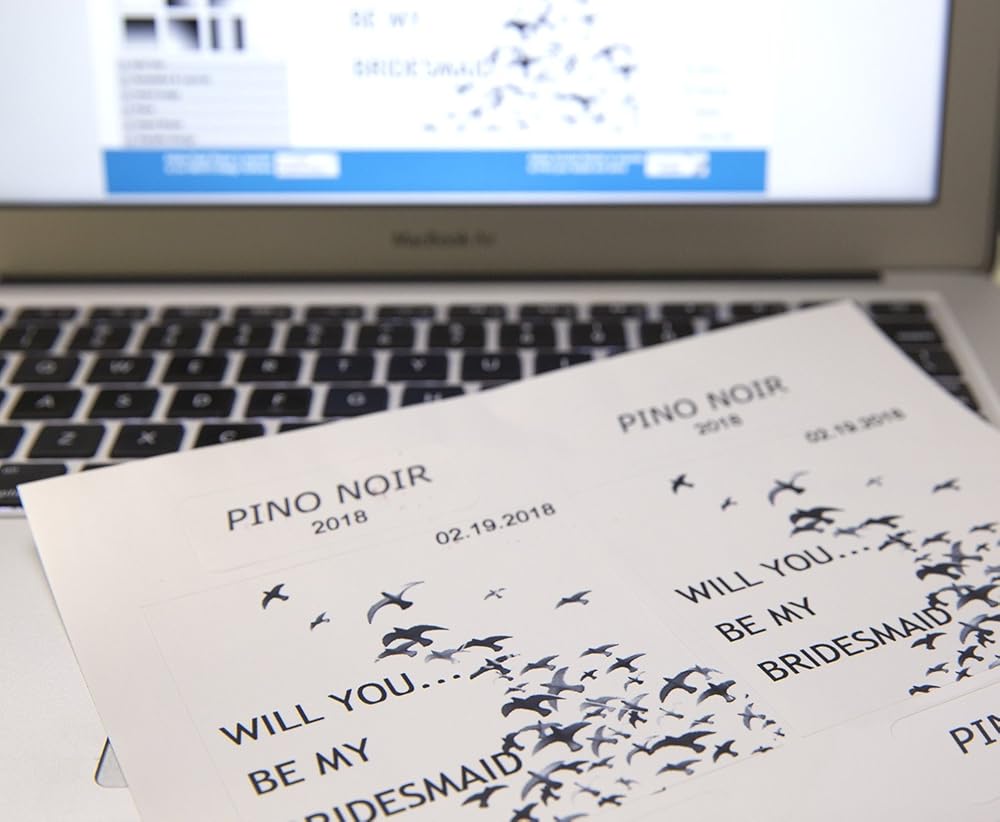 BE MY
BRIDESMAID
MacBook Air
Q W E R T Y U I
A S D F G H
Z X C
PINO NOIR
2018
02.19.2018
WILL YOU...
BE MY
BRIDESMAID
PINO NOIR
2018
02.19.2018
WILL YOU...
BE MY
BRIDESMAID
PIN